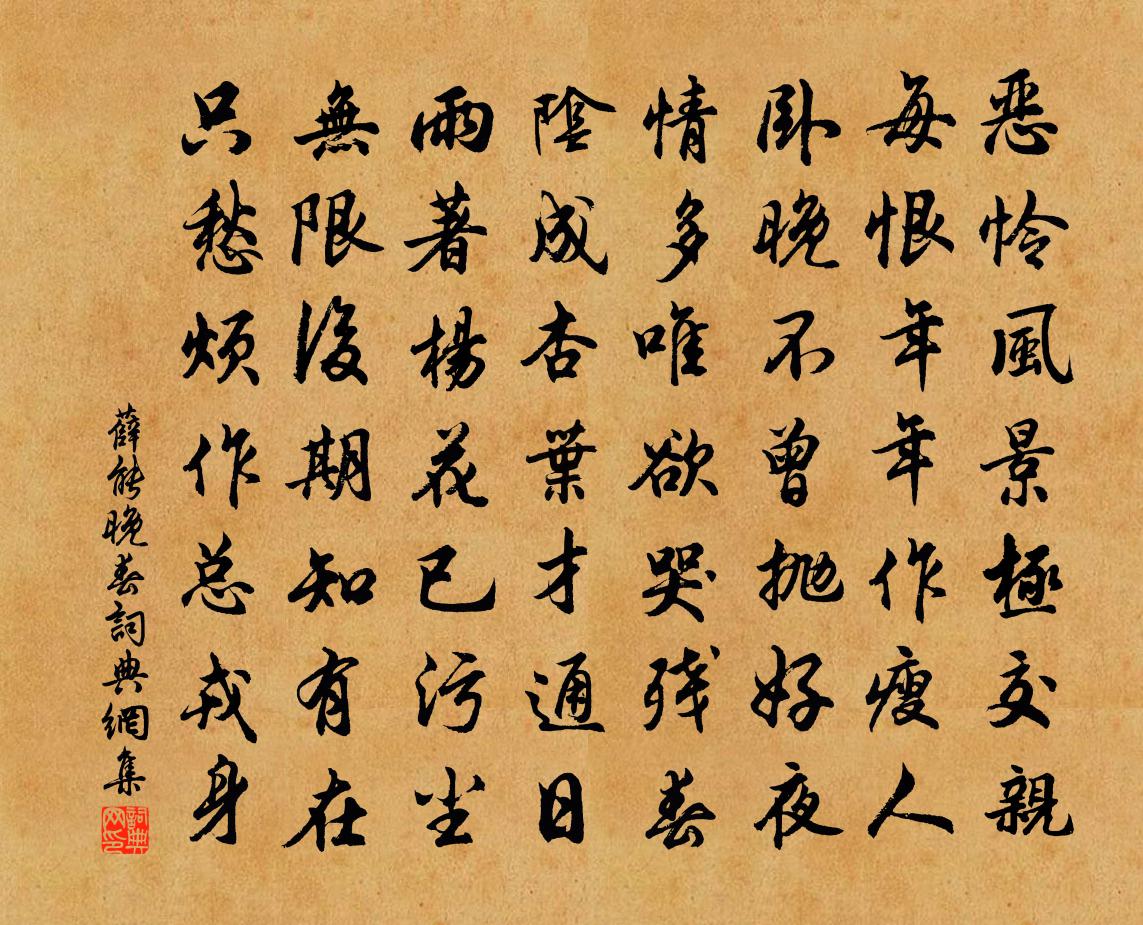 恶怜風景極交親
每恨年年作瘦人
臥晚不曾抛好夜
情多唯欲哭残春
陰成杏葉才通日
雨著楊花已污尘
無限後期知有在
只愁烦作总戎身
薛能晚春詞典網集
詞典网印